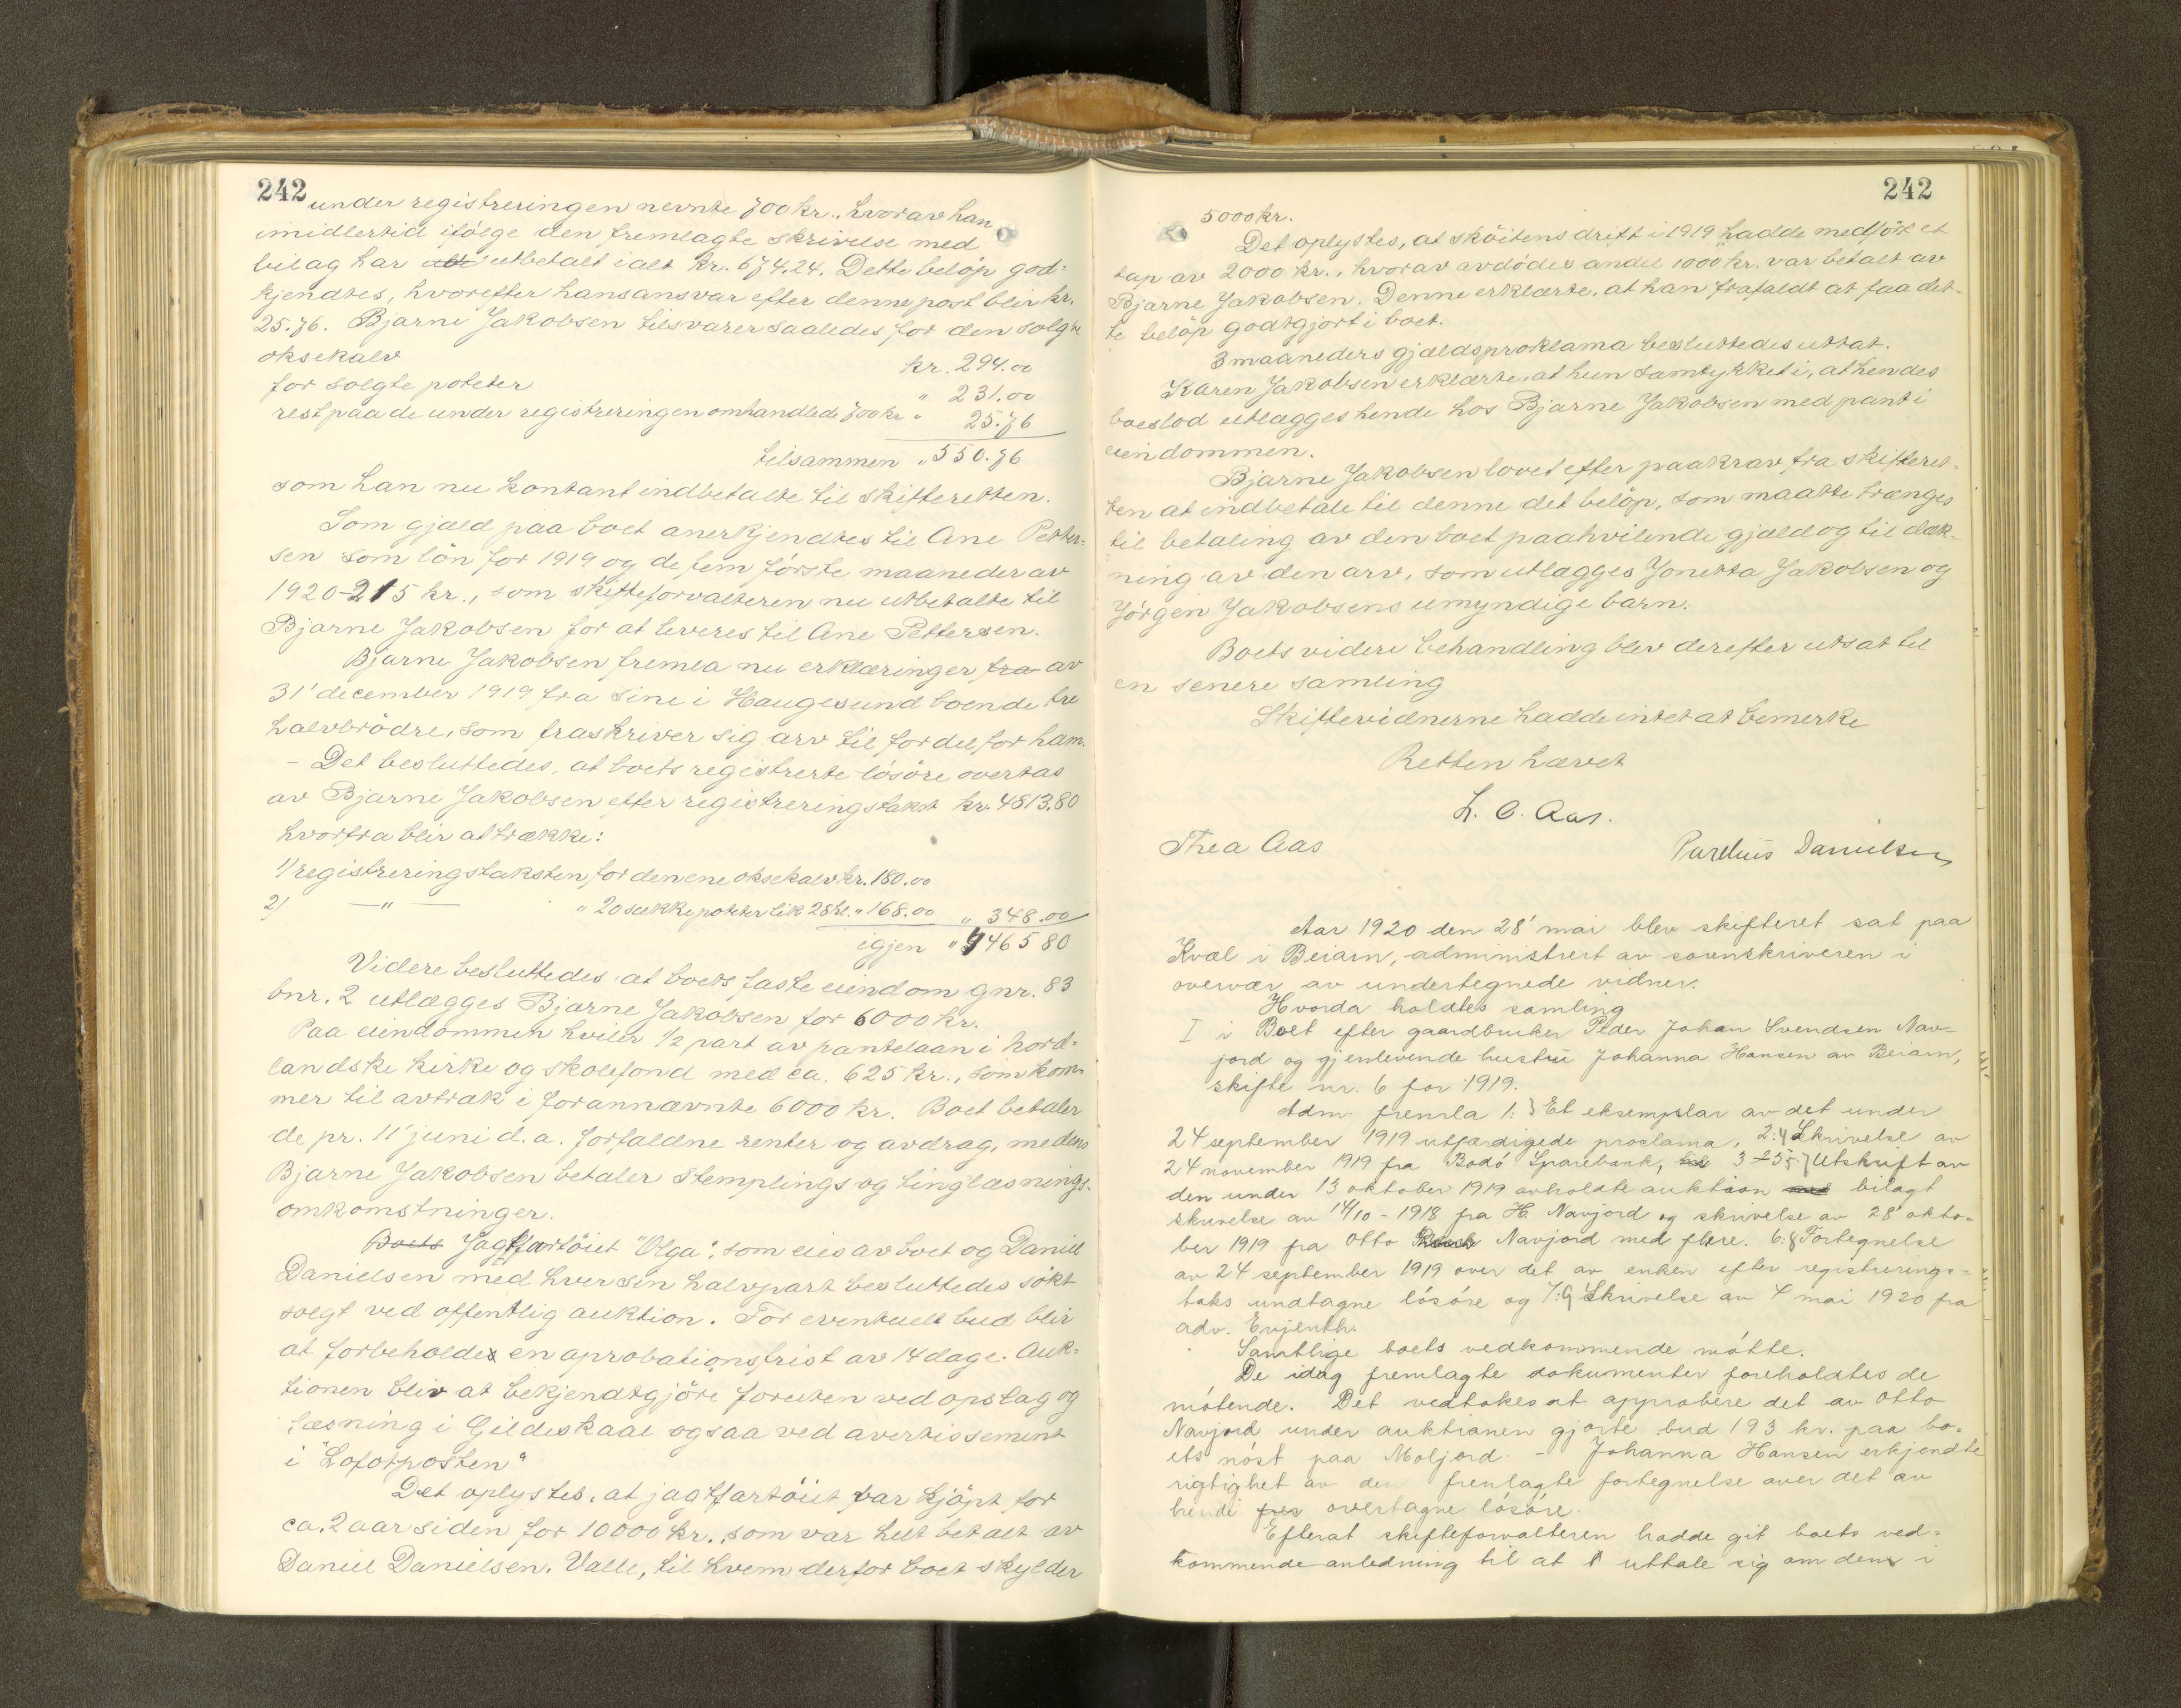 242
under registreringen nevnte 700 kr., hvorav han
imidlertid ifölge den fremlagte skrivelse med
bilag har utbetalt ialt kr. 674.24. Dette belöp god-
kjendtes, hvorefter hans ansvar efter denne post blir kr.
25.76. Bjarne Jakobsen tilsvarer saaledes for den solgte
oksekalv kr. 294.00
for solgte poteter " 231.00
rest paa de under registreringen omhandlede 700 kr " 25.76
tilsammen " 550.76
som han nu kontant indbetalte til skifteretten.
Som gjæld paa boet anerkjendtes til Ane Petter-
sen som lön for 1919 og de fem förste maaneder av
1920 - 215 kr., som skifteforvalteren nu utbetalte til
Bjarne Jakobsen for at leveres til Ane Pettersen.
Bjarne Jakobsen fremla nu erklæringer fra av
31' december 1919 fra sine i Haugesund boende tre
halvbrödre, som fraskriver sig arv til fordel for ham.
- Det besluttedes, at boets registrerte lösöre overtas
av Bjarne Jakobsen efter registreringstakst kr. 4813.80
hvorfra blir at trække:
1/ registreringstaksten for den ene oksekalv kr. 180.00
2/ — " — " 20 sække poteter lik 28 hl. " 168.00 " 348.00
igjen " 4465 80
Videre besluttedes at boets faste eiendom gnr. 83
bnr. 2 utlægges Bjarne Jakobsen for 6000 kr.
Paa eiendommen hviler 1/2 part av pantelaan i Nord-
landske kirke og skolefond med ca. 625 kr., som kom-
mer til avtræk i forannævnte 6000 kr. Boet betaler
de pr. 11' juni d.a. forfaldne renter og avdrag, medens
Bjarne Jakobsen betaler stemplings og tinglæsnings-
omkomstninger.
Boets Jagtfartöiet "Olga", som eies av boet og Daniel
Danielsen med hver sin halvpart besluttedes sökt
solgt ved offentlig auktion. For eventuelt bud blir
at forbeholdes en aprobationsfrist av 14 dage. Auk-
tionen blir at bekjendtgjöre foruten ved opslag og
læsning i Gildeskaal ogsaa ved avertissement
i "Lofotposten"
Det oplystes, at jagtfartöiet var kjöpt for
ca. 2 aar siden for 10000 kr., som var helt betalt av
Daniel Danielsen, Valle, til hvem derfor boet skylder
242
5000 kr.
Det oplystes, at sköitens drift i 1919 hadde medfört et
tap av 2000 kr., hvorav avdödes andel 1000 kr. var betalt av
Bjarne Jakobsen. Denne erklærte, at han frafaldt at faa det-
te belöp godtgjort i boet.
3 maaneders gjældsproklama besluttedes uttat.
Karen Jakobsen erklærte, at hun samtykket i, at hendes
boeslod utlægges hende hos Bjarne Jakobsen med pant i
eiendommen.
Bjarne Jakobsen lovet efter paakrav fra skifteret-
ten at indbetale til denne det belöp, som maatte trænges
til betaling av den boet paahvilende gjæld og til dæk-
ning av den arv, som utlægges Jonetta Jakobsen og
Jörgen Jakobsens umyndige barn.
Boets videre behandling blev derefter utsat til
en senere samling
Skiftevidnerne hadde intet at bemerke
Retten hævet
L. C. Aas.
Thea Aas Pareluis Danielsen
Aar 1920 den 28' mai blev skifteret sat paa
Kvæl i Beiarn, administrert av sorenskriveren i
overvær av undertegnede vidner.
Hvorda holdtes samling
I i Boet efter gaardbruker Peder Johan Svendsen Nav-
jord og gjenlevende hustru Johanna Hansen av Beiarn,
skifte nr. 6 for 1919.
Adm. fremla 1: 3 Et eksemplar av det under
24 september 1919 utfærdigede proclama, 2: 4 Skrivelse av
24 november 1919 fra Bodö Sparebank, 3-5 Utskrift av
den under 13 oktober 1919 avholdte auktion bilagt
skrivelse av 14/10 - 1918 fra H. Navjord og skrivelse av 28' okto-
ber 1919 fra Otto Navjord med flere. 6: 8 Fortegnelse
av 24 september 1919 over det av enken efter registrerings-
taks undtagne lösöre og 7: 9 Skrivelse av 4 mai 1920 fra
adv. Evjenth.
Samtlige boets vedkommende mötte.
De idag fremlagte dokumenter foreholdtes de
mötende. Det vedtokes at approbere det av Otto
Navjord under auktionen gjorte bud 193 kr. paa bo-
ets nöst paa Moljord. - Johanna Hansen erkjendte
rigtighet av den fremlagte fortegnelse over det av
hende overtagne lösöre.
Efterat skifteforvalteren hadde git boets ved-
kommende anledning til at uttale sig om den i